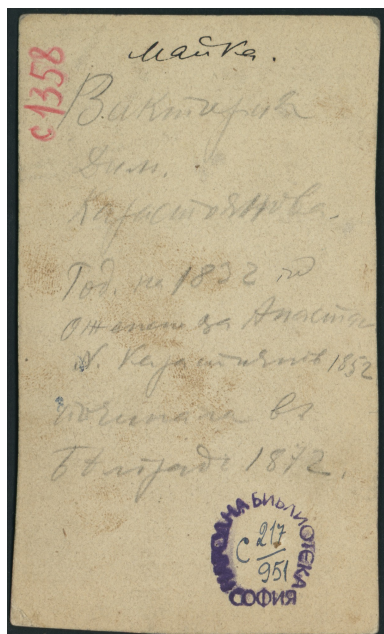 майка.
с 1358
Виктория
Дим.
Карастоянова.
Год. на 1832 год
оженена за Анастас
N. Карастоянов 1852
починала въ
Бѣлградъ 1872.
НАРОДНА БИБЛИОТЕКА
СОФИЯ
С 217
951